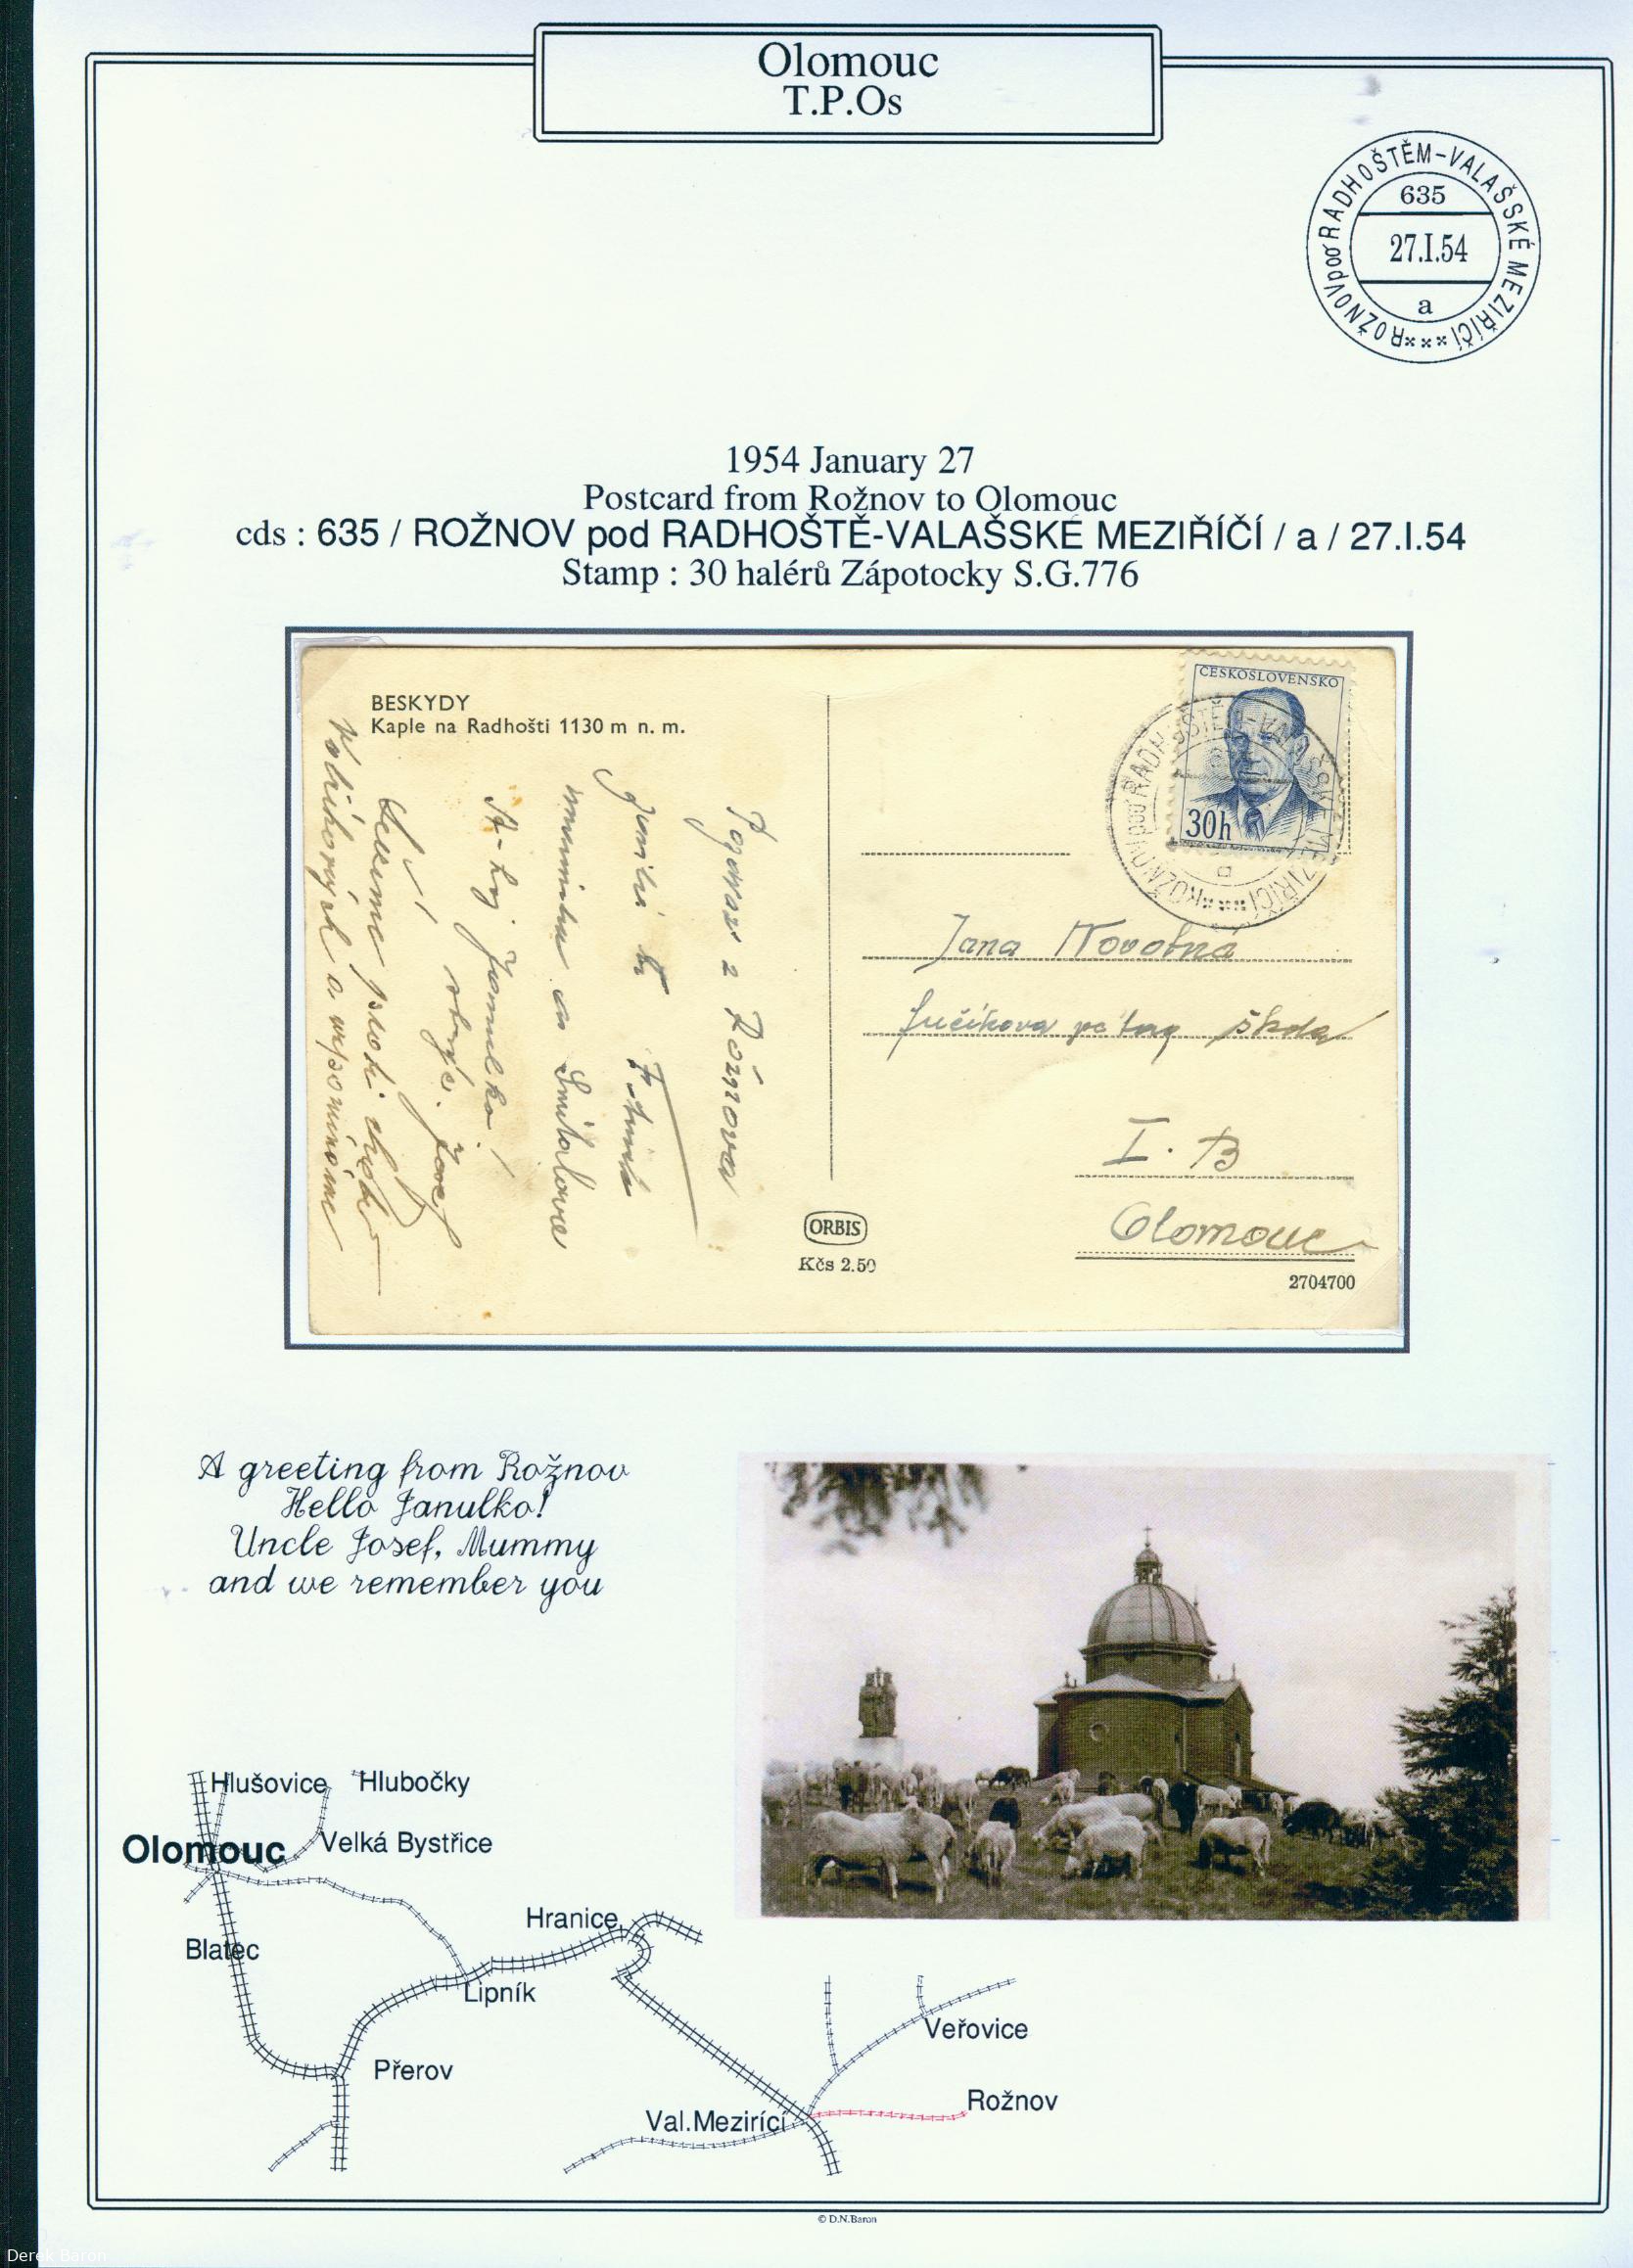 Olomouc
T.P.Os
ROŽNOV pod RADHOŠTĚM-VALAŠSKÉ MEZIŘÍČÍ
635
27.I.54
a
1954 January 27
Postcard from Rožnov to Olomouc
cds : 635 / ROŽNOV pod RADHOŠTĚ-VALAŠSKÉ MEZIŘÍČÍ / a / 27.I.54
Stamp : 30 halérů Zápotocky S.G.776
BESKYDY
Kaple na Radhošti 1130 m n. m.
ČESKOSLOVENSKO
30h
Pozdrav z Rožnova
vzpomínáme
Jana Novotná
Fučíkova pětiletá škola
I. B
Olomouc
ORBIS
Kčs 2.50
2704700
A greeting from Rožnov
Hello Janulko!
Uncle Josef, Mummy
and we remember you
Hlušovice
Hlubočky
Olomouc
Velká Bystřice
Hranice
Blatec
Lipník
Veřovice
Přerov
Rožnov
Val.Mezirící
© D.N.Baron
Derek Baron